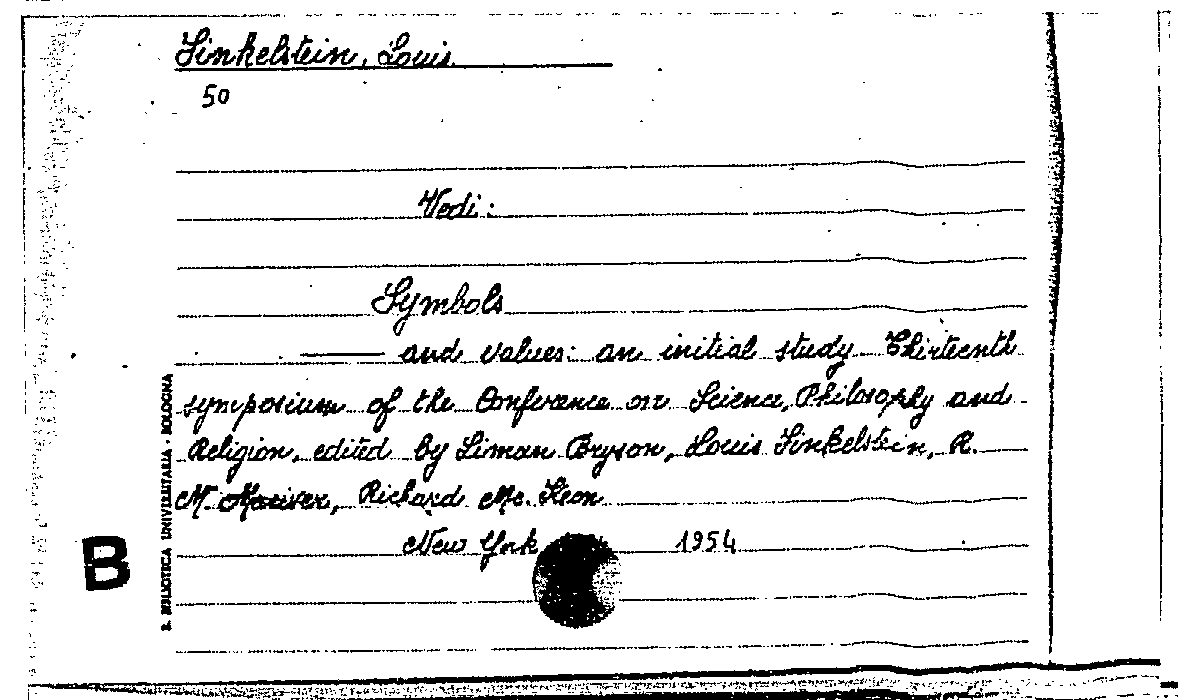 Finkelstein, Louis
50
Vedi:
Symbols
—— and values: an initial study Thirteenth
symposium of the Conference on Science, Philosophy and
Religion, edited by Liman Bryson, Louis Finkelstein, R.
M. Maciver, Richard Mc. Keon
New York 1954
B
R. BIBLIOTECA UNIVERSITARIA - BOLOGNA